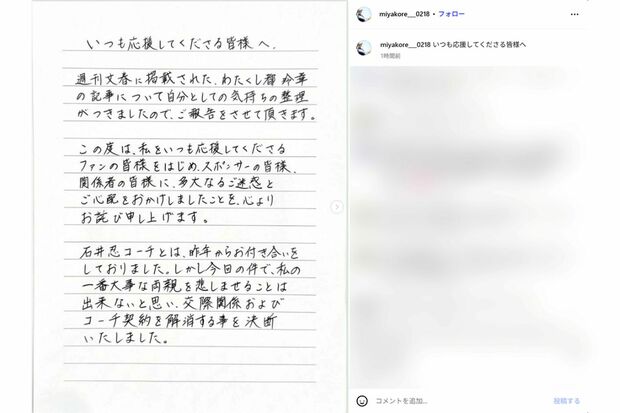 いつも応援してくださる皆様へ、
週刊文春に掲載された、わたくし都玲華
の記事について自分としての気持ちの整理
がつきましたので、ご報告をさせて頂きます。
この度は、私をいつも応援してくださる
ファンの皆様をはじめ、スポンサーの皆様、
関係者の皆様に、多大なるご迷惑と
ご心配をおかけしましたことを、心より
お詫び申し上げます。
石井忍コーチとは、昨年からお付き合いを
しておりました。しかし今日の件で、私の
一番大事な両親を悲しませることは
出来ないと思い、交際関係および
コーチ契約を解消する事を決断
いたしました。
miyakore__0218 • フォロー
miyakore__0218 いつも応援してくださる皆様へ
1時間前
コメントを追加...
投稿する